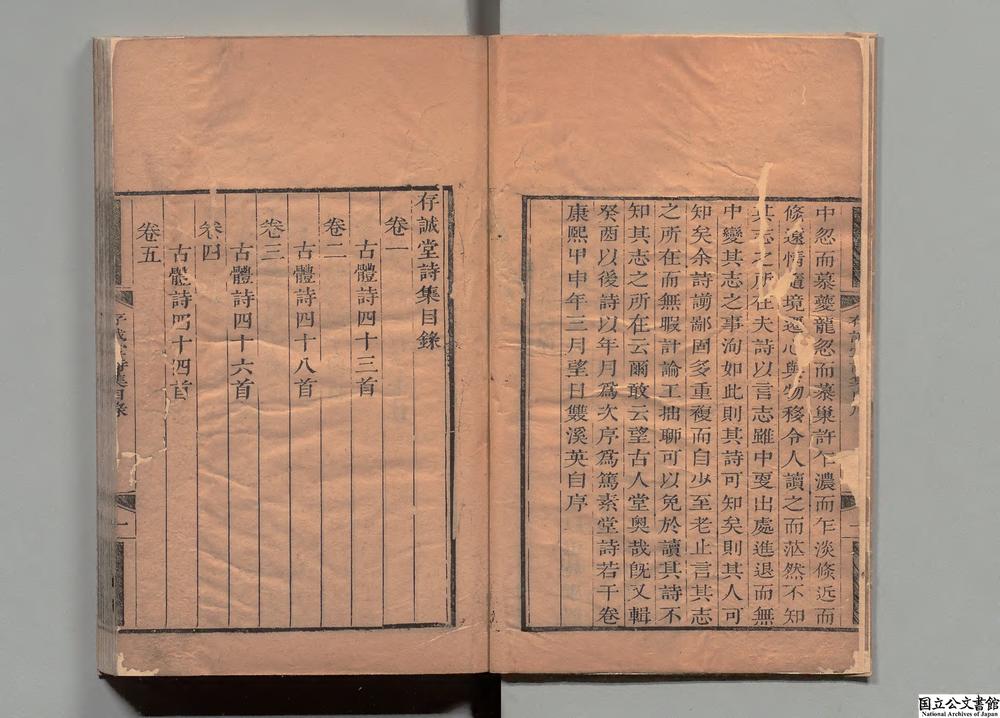 中忽而慕夔龍忽而慕巢許乍濃而乍淡條近而
條遠情隨境遷心與物移令人讀之而茫然不知
其志之所在夫詩以言志雖中更出處進退而無
中變其志之事洵如此則其詩可知矣則其人可
知矣余詩謭鄙固多重複而自少至老止言其志
之所在而無暇計論工拙聊可以免於讀其詩不
知其志之所在云爾敢云望古人堂奧哉旣又輯
癸酉以後詩以年月爲次序爲篤素堂詩若干卷
康熙甲申年三月望日雙溪英自序
存誠堂詩集目錄
卷一
古體詩四十三首
卷二
古體詩四十八首
卷三
古體詩四十六首
卷四
古體詩四十四首
卷五
存誠堂詩集目錄
一
国立公文書館
National Archives of Japan